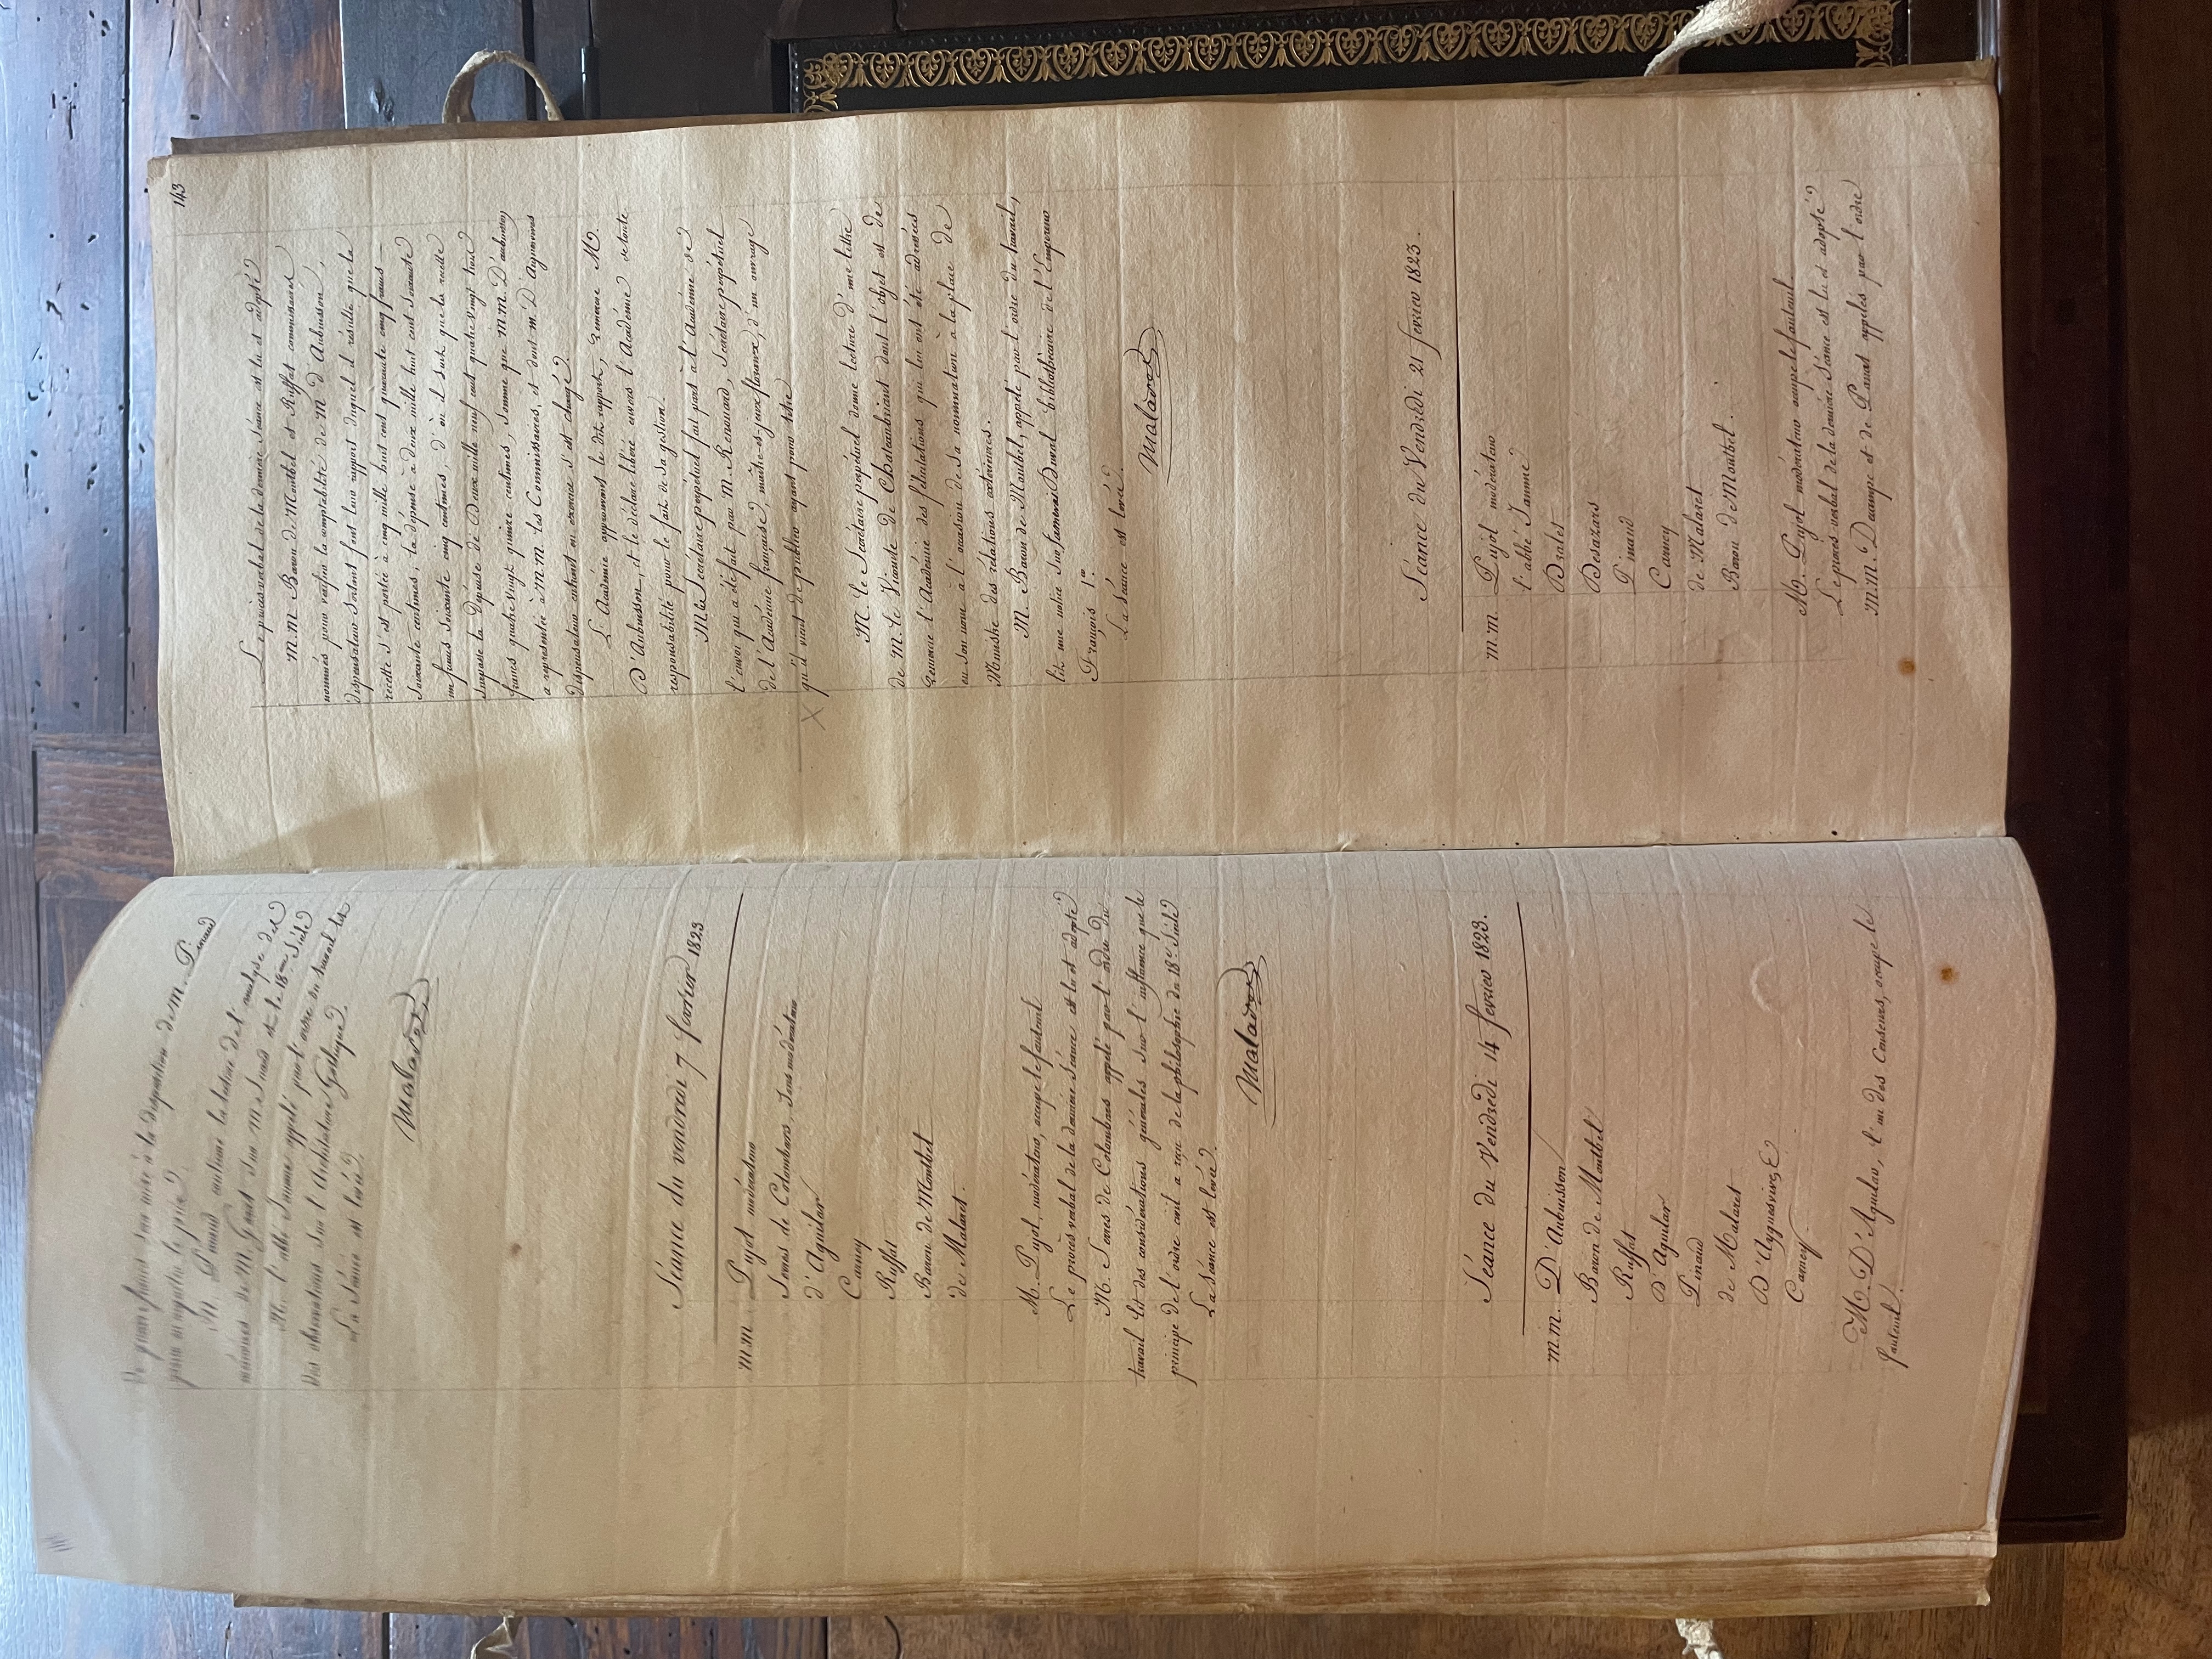 De quoi faire sera mise à la disposition de M. Pinaud
pour en acquitter le prix.
M. Pinaud continue la lecture de l'analyse des
mémoires de M. Garat sur M. Suard et le 18me Siècle
M. l'abbé Jamme appelé par l'ordre du travail lit
Des observations sur l'Architecture Gothique.
La Séance est levée.
Malaret
Séance du vendredi 7 fevrier 1823
M.M. Pujol modérateur
Serres de Colombars, Sous modérateur
d'Aguilar
Carney
Ruffat
Baron de Montbel
de Malaret.
M. Pujol, modérateur, occupe le fauteuil
Le procès verbal de la dernière Séance est lu et adopté
M. Serres de Colombars appelé par l'ordre du
travail lit des considérations générales sur l'influence que le
principe de l'ordre civil a reçu de la philosophie du 18e Siècle
La Séance est levée.
Malaret
Séance du Vendredi 14 fevrier 1823.
M.M. D'Aubuisson
Baron de Montbel
Ruffat
D'Aguilar
Pinaud
de Malaret
D'Ayguesvives
Carney
M. D'Aguilar, l'un des Censeurs, occupe le
fauteuil.
143
Le procès verbal de la dernière Séance est lu et adopté
M.M. Baron de Montbel et Ruffat commissaires
nommés pour vérifier la comptabilité de M. d'Aubuisson,
dispensateur sortant font leur rapport duquel il résulte que la
recette s'est portée à cinq mille huit cent quarante cinq francs
Soixante centimes, la dépense à deux mille huit cent Soixante
un francs Soixante cinq centimes, d'où il suit que la recette
Surpasse la Dépense de Deux mille neuf cent quatre vingt trois
francs quatre vingt quinze centimes, Somme que M.M. D'aubuisson
a représentée à M.M. les Commissaires, et dont M. D'Aiguesvives
dispensateur entrant en exercice s'est chargé.
L'Académie approuvant le dit rapport, remercie M.
D'Aubuisson, et le déclare libéré envers l'Académie de toute
responsabilité pour le fait de sa gestion.
M. le Secrétaire perpétuel fait part à l'Académie de
l'envoi qui a été fait par M. Renouard, Secrétaire perpétuel
de l'Académie française, maître-es-jeux floraux, d'un ouvrage
X qu'il vient de publier ayant pour titre
M. le Secrétaire perpétuel donne lecture d'une lettre
de M. le Vicomte de Chateaubriant dont l'objet est de
remercier l'Académie des félicitations qui lui ont été adressées
en son nom à l'occasion de sa nomination à la place de
Ministre des relations extérieures.
M. Baron de Montbel, appelé par l'ordre du travail,
lit une notice Sur Duval bibliothécaire de l'Empereur
François 1er.
La Séance est levée.
Malaret
Séance du Vendredi 21 fevrier 1823.
M.M. Pujol modérateur
l'abbé Jamme
Dralet
Desazars
Pinaud
Carney
de Malaret
Baron de Montbel.
M. Pujol modérateur occupe le fauteuil
Le procès-verbal de la dernière Séance est lu et adopté
M.M. Decampe et de Panat appelés par l'ordre